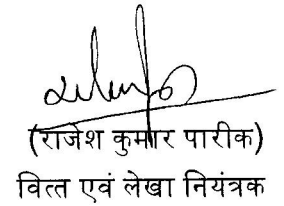 (राजेश कुमार पारीक)
वित्त एवं लेखा नियंत्रक